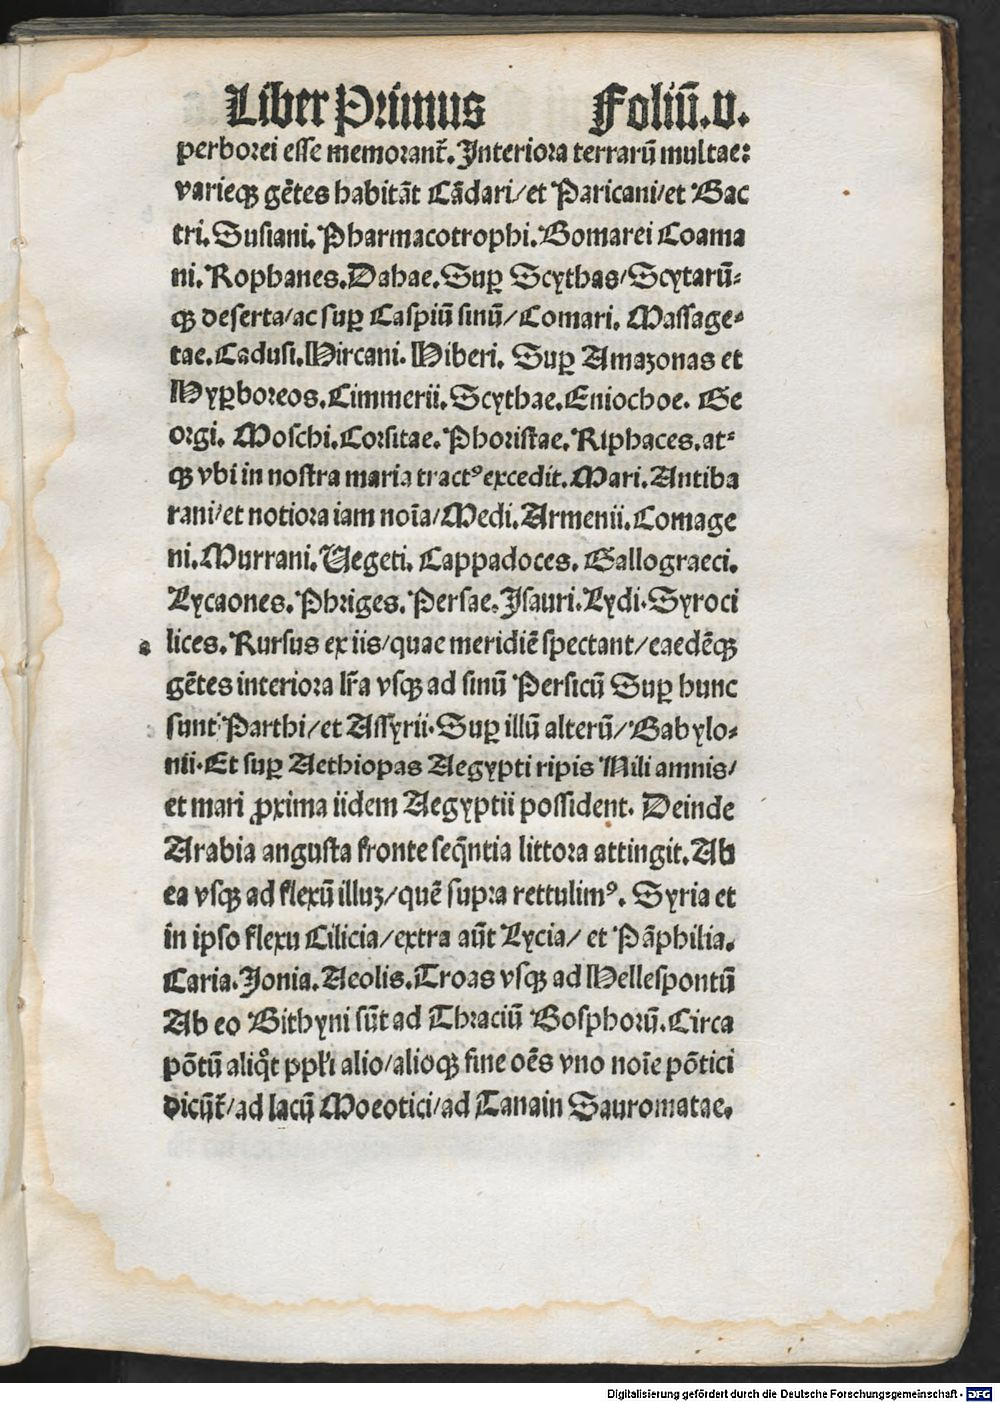 Liber Primus Foliū.v.
perborei esse memorant̄. Interiora terrarū multae:
varieqꝫ gētes habitāt Cādari/et Paricani/et Bac
tri. Susiani. Pharmacotrophi. Bomarei Coama
ni. Rophanes. Dahae. Suꝑ Scythas/Scytarū⸗
qꝫ deserta/ac suꝑ Caspiū sinū/Comari. Massage⸗
tae. Cadusi. Hircani. Hiberi. Suꝑ Amazonas et
Hyꝑboreos. Cimmerii. Scythae. Eniochoe. Ge
orgi. Moschi. Corsitae. Phoristae. Riphaces. at⸗
qꝫ vbi in nostra maria tractꝰ excedit. Mari. Antiba
rani/et notiora iam noīa/Medi. Armenii. Comage
ni. Murrani. Vegeti. Cappadoces. Gallograeci.
Lycaones. Phriges. Persae. Isauri. Lydi. Syroci
lices. Rursus ex iis/quae meridiē spectant/eaedēqꝫ
gētes interiora lr̄a vsqꝫ ad sinū Persicū Suꝑ hunc
sunt Parthi/et Assyrii. Suꝑ illū alterū/Babylo⸗
nii. Et suꝑ Aethiopas Aegypti ripis Nili amnis/
et mari ꝓxima iidem Aegyptii possident. Deinde
Arabia angusta fronte seq̄ntia littora attingit. Ab
ea vsqꝫ ad flexū illuꝫ/quē supra rettulimꝰ. Syria et
in ipso flexu Cilicia/extra aūt Lycia/ et Pāphilia.
Caria. Ionia. Aeolis. Troas vsqꝫ ad Hellespontū
Ab eo Bithyni sūt ad Thraciū Bosphorū. Circa
pōtū aliqͦt ppl'i alio/alioqꝫ fine oēs vno noīe pōtici
dicūt̄/ad lacū Moeotici/ad Tanain Sauromatae.
Digitalisierung gefördert durch die Deutsche Forschungsgemeinschaft - DFG